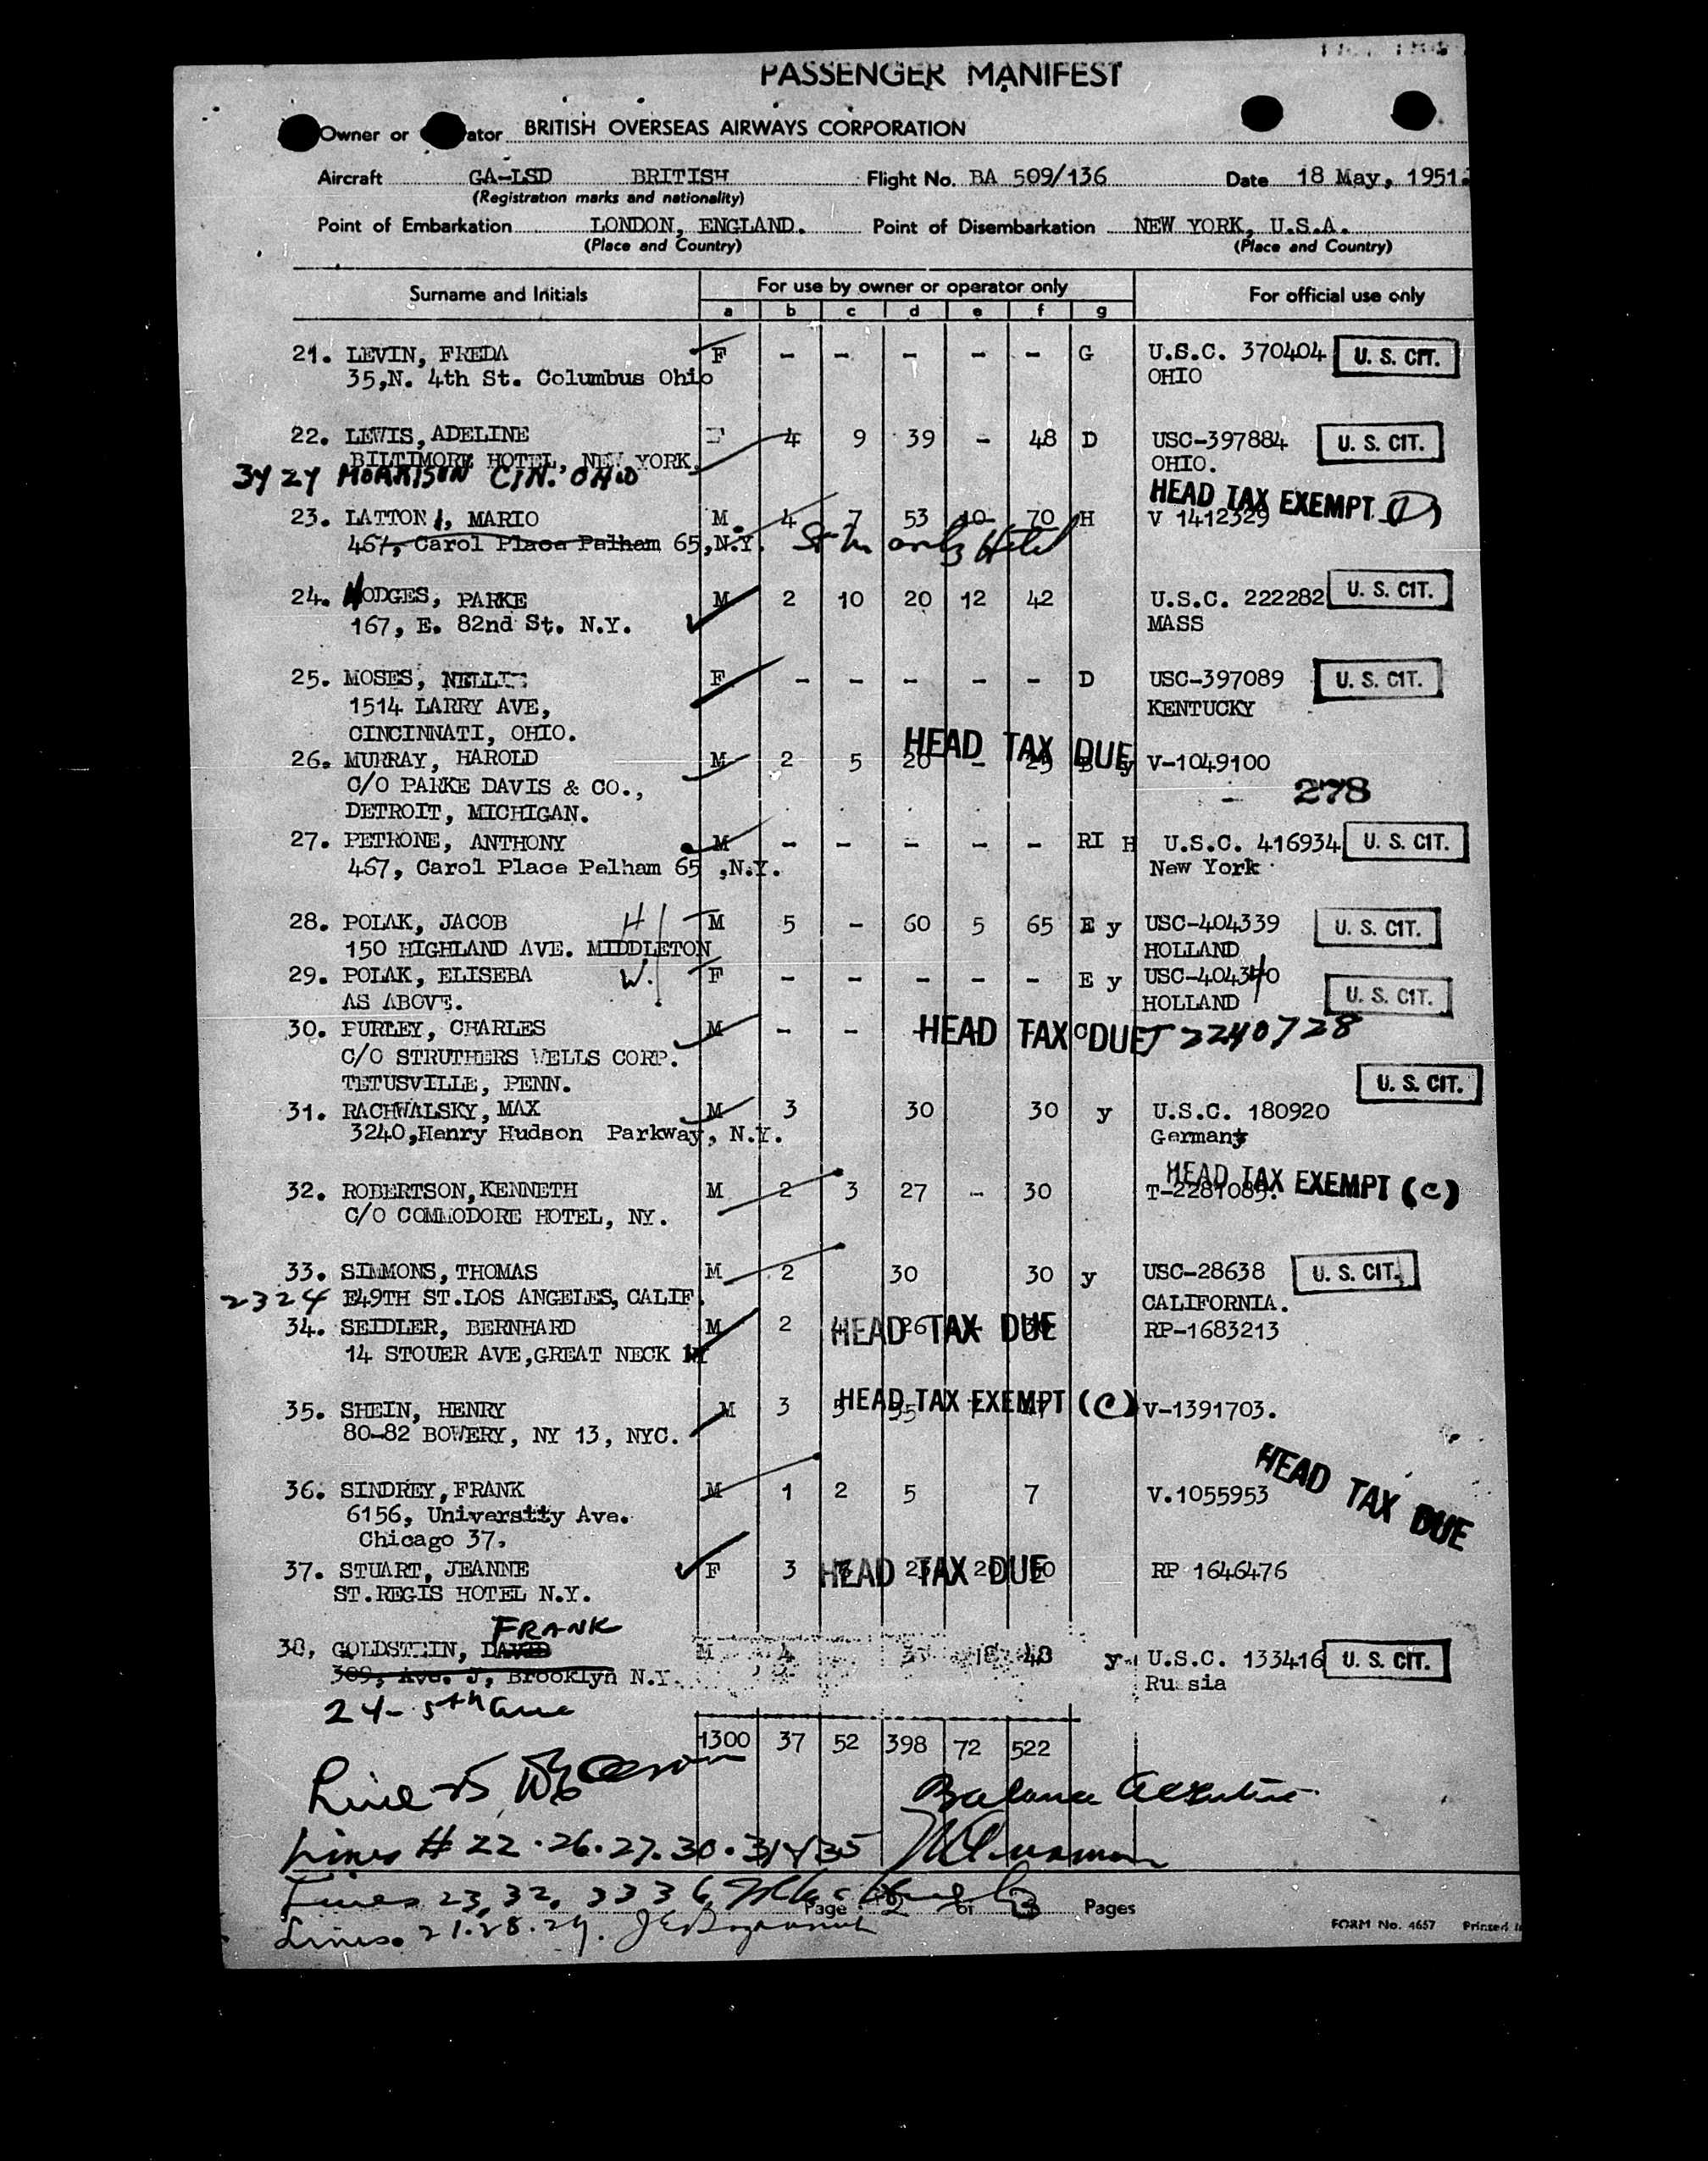 PASSENGER MANIFEST
Owner or ator BRITISH OVERSEAS AIRWAYS CORPORATION
Aircraft GA-LSD BRITISH Flight No. BA 509/136 Date 18 May, 1951.
(Registration marks and nationality)
Point of Embarkation LONDON, ENGLAND. Point of Disembarkation NEW YORK, U.S.A.
(Place and Country) (Place and Country)
Surname and Initials For use by owner or operator only For official use only
a b c d e f g
21. LEVIN, FREDA F - - - - - G U.S.C. 370404 U. S. CIT.
35,N. 4th St. Columbus Ohio OHIO
22. LEWIS, ADELINE F 4 9 39 - 48 D USC-397884 U. S. CIT.
BILTIMORE HOTEL, NEW YORK, OHIO.
3424 MORRISON CIN. OHIO HEAD TAX EXEMPT
23. LATTON, MARIO M 4 7 53 10 70 H V 1412329
467, Carol Place Pelham 65,N.Y. Hotel
24. HODGES, PARKE M 2 10 20 12 42 U.S.C. 222282 U. S. CIT.
167, E. 82nd St. N.Y. MASS
25. MOSES, NELLIE F - - - - - D USC-397089 U. S. CIT.
1514 LARRY AVE, KENTUCKY
CINCINNATI, OHIO. HEAD TAX DUE
26. MURRAY, HAROLD M 2 5 20 - 25 y V-1049100
C/O PARKE DAVIS & CO., - 278
DETROIT, MICHIGAN.
27. PETRONE, ANTHONY M - - - - - RI H U.S.C. 416934 U. S. CIT.
467, Carol Place Pelham 65 ,N.Y. New York
28. POLAK, JACOB H M 5 - 60 5 65 E y USC-404339 U. S. CIT.
150 HIGHLAND AVE. MIDDLETON HOLLAND
29. POLAK, ELISEBA W. F - - - - - E y USC-404340
AS ABOVE. HOLLAND U. S. CIT.
30. PURLEY, CHARLES M - - - HEAD TAX DUE 2240728
C/O STRUTHERS WELLS CORP.
TETUSVILLE, PENN. U. S. CIT.
31. RACHWALSKY, MAX M 3 30 30 y U.S.C. 180920
3240,Henry Hudson Parkway, N.Y. Germany
HEAD TAX EXEMPT (C)
32. ROBERTSON,KENNETH M 2 3 27 - 30 T-2281085.
C/O COMMODORE HOTEL, NY.
33. SIMMONS, THOMAS M 2 30 30 y USC-28638 U. S. CIT.
2324 E49TH ST.LOS ANGELES, CALIF. CALIFORNIA.
34. SEIDLER, BERNHARD M 2 26 HEAD TAX DUE RP-1683213
14 STOUER AVE,GREAT NECK NY
35. SHEIN, HENRY M 3 HEAD TAX EXEMPT (C) V-1391703.
80-82 BOWERY, NY 13, NYC.
36. SINDREY, FRANK M 1 2 5 7 V.1055953 HEAD TAX DUE
6156, University Ave.
Chicago 37.
37. STUART, JEANNE F 3 HEAD TAX DUE RP 1646476
ST.REGIS HOTEL N.Y.
FRANK
38, GOLDSTEIN, DAVID M 4 18 48 y U.S.C. 133416 U. S. CIT.
309, Ave. J, Brooklyn N.Y. Russia
24- 5th Ave
1300 37 52 398 72 522
Line 25
Balance
Lines # 22.26.27.30.31 & 35
Lines 23, 32, 33 36
Page 2 of 3 Pages
Lines. 21.28.29.
FORM No. 4657 Printed